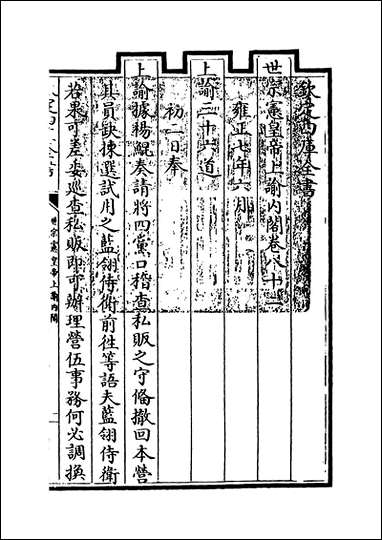 欽定四庫全書
世宗憲皇帝上諭內閣卷八十二
雍正七年六月
上諭二十六道
初二日奉
上諭據楊鯤奏請將四黨口稽查私販之守備撤回本營
其員缺揀選試用之藍翎侍衛前往等語夫藍翎侍衛
若果可差委巡查私販即可辦理營伍事務何必調換
世宗憲皇帝上諭內閣